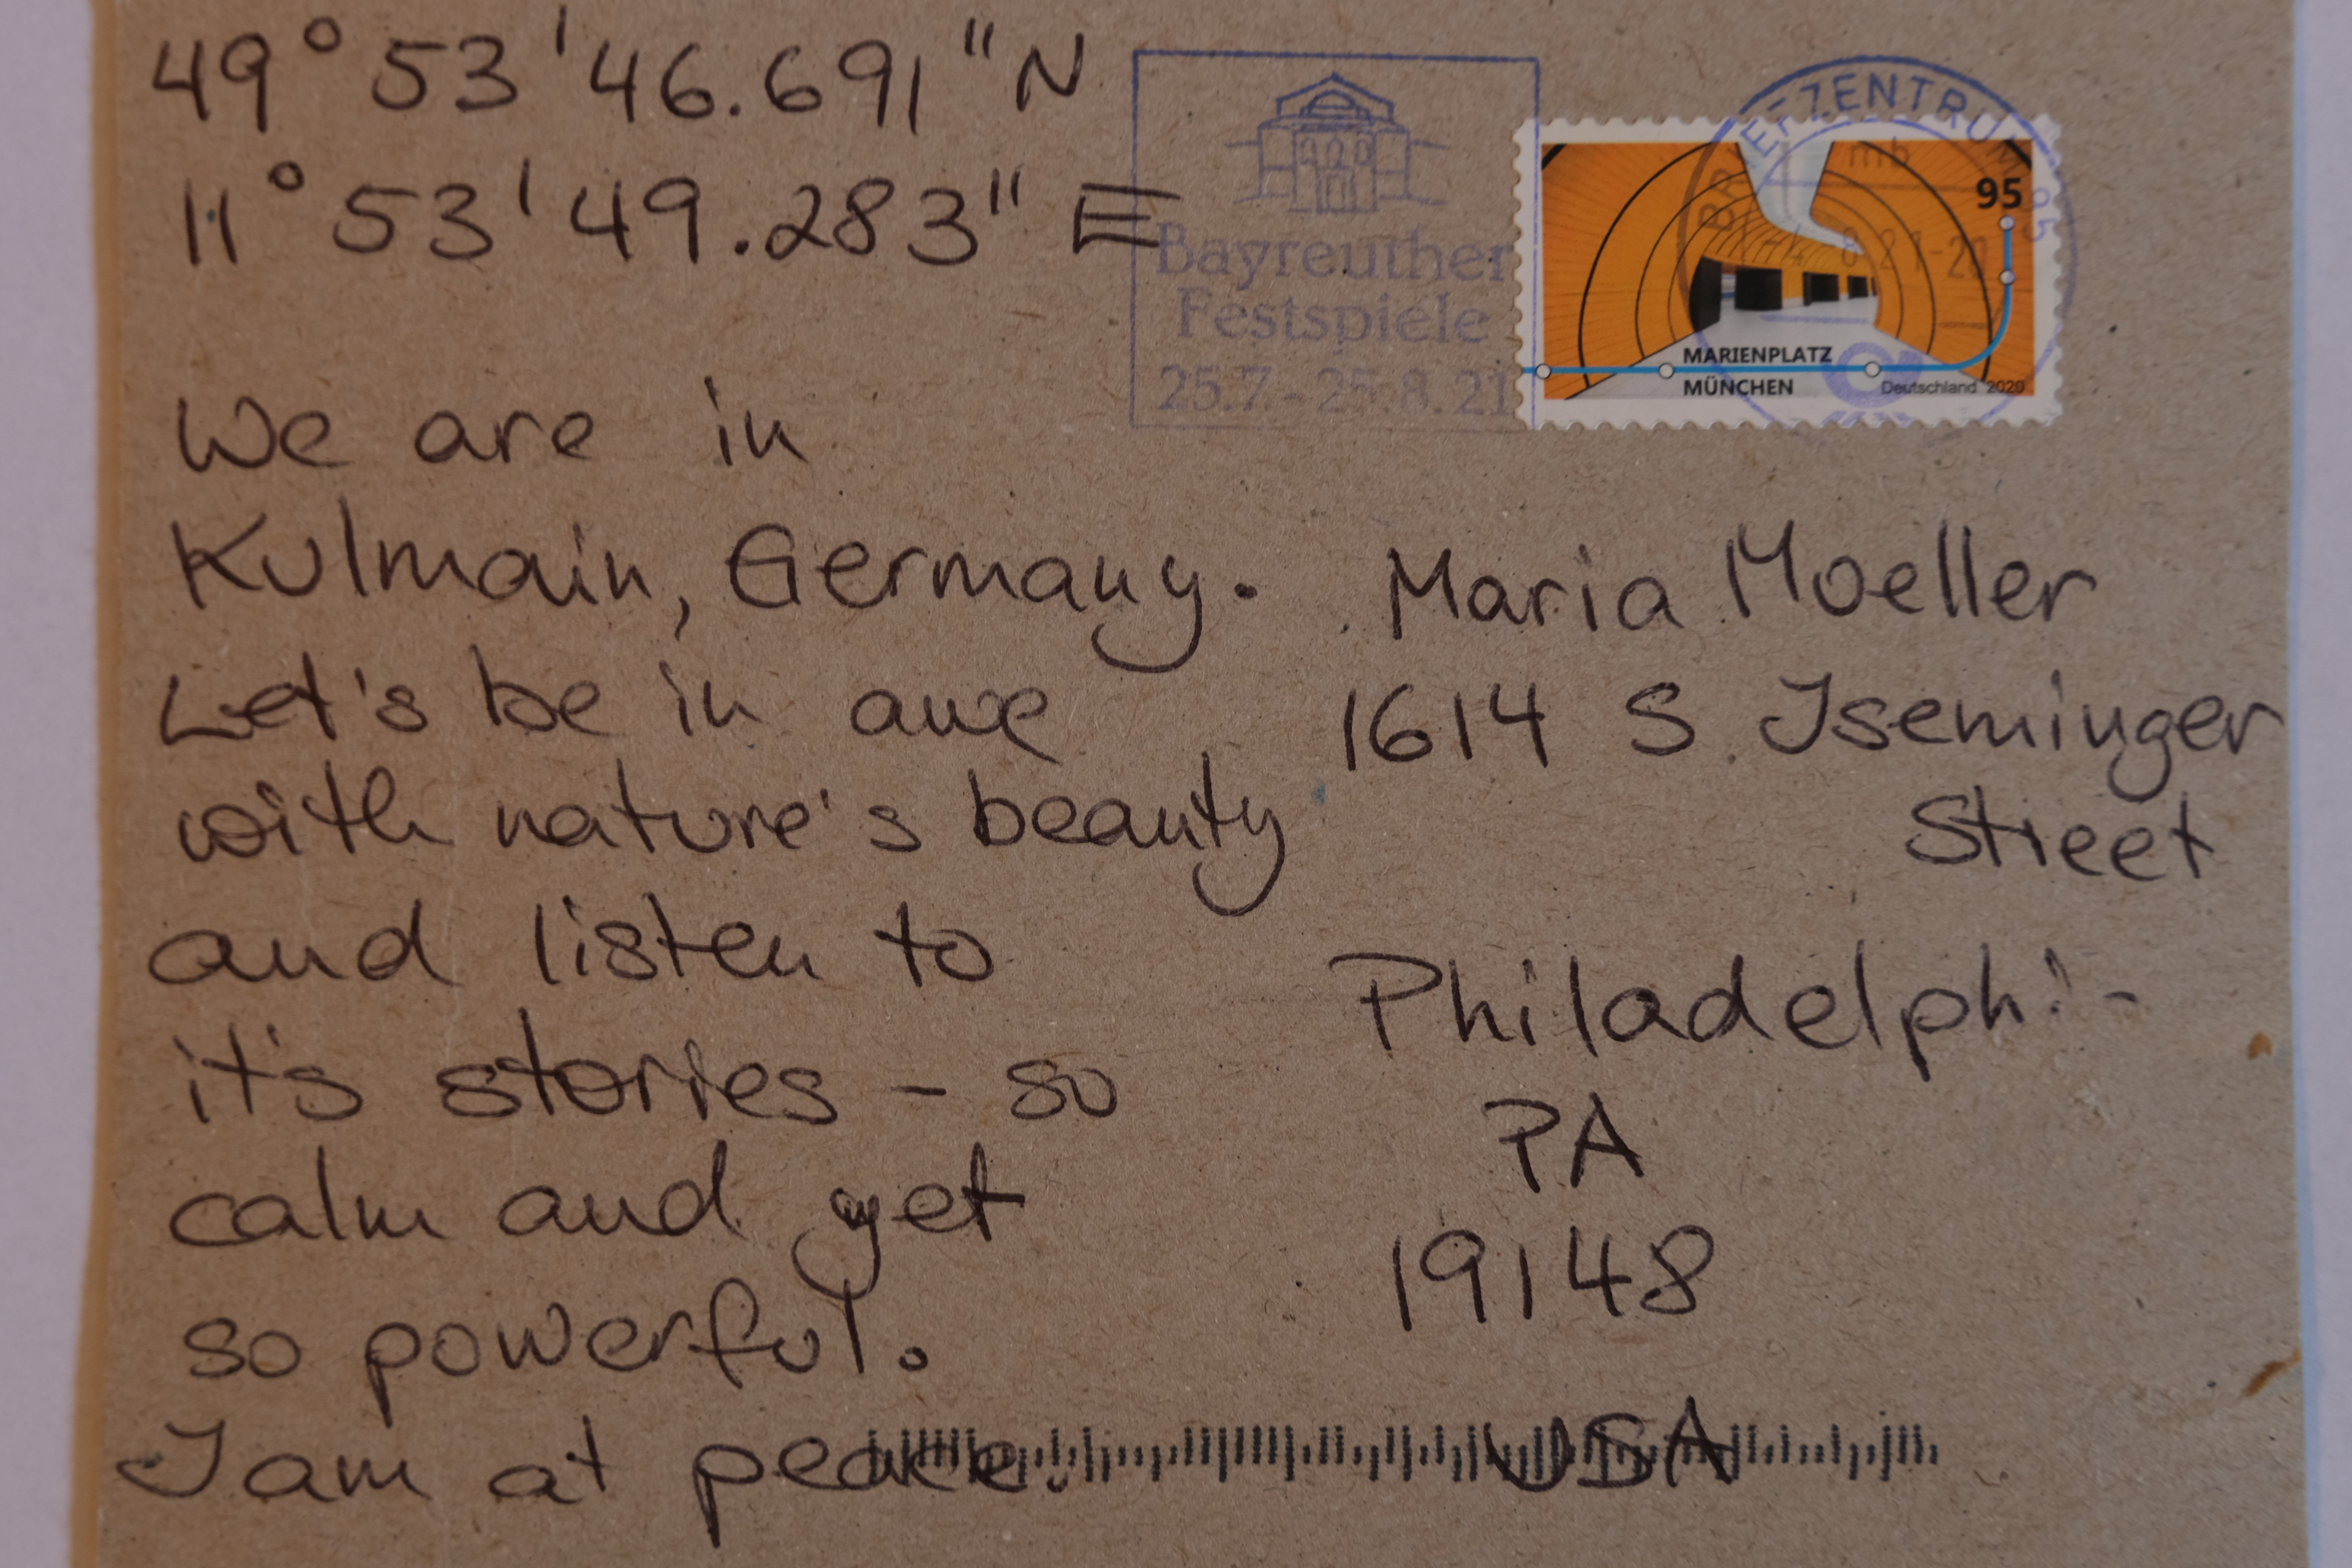 49°53'46.691"N
11°53'49.283"E
We are in
Kulmain, Germany.
Let's be in awe
with nature's beauty
and listen to
it's stories – so
calm and yet
so powerful.
I am at peace.
Bayreuther
Festspiele
25.7.-25.8.21
BRIEFZENTRUM 95
mb
8.21-20
95
MARIENPLATZ
MÜNCHEN
Deutschland 2020
Maria Moeller
1614 S. Iseminger
Street
Philadelphi-
PA
19148
USA